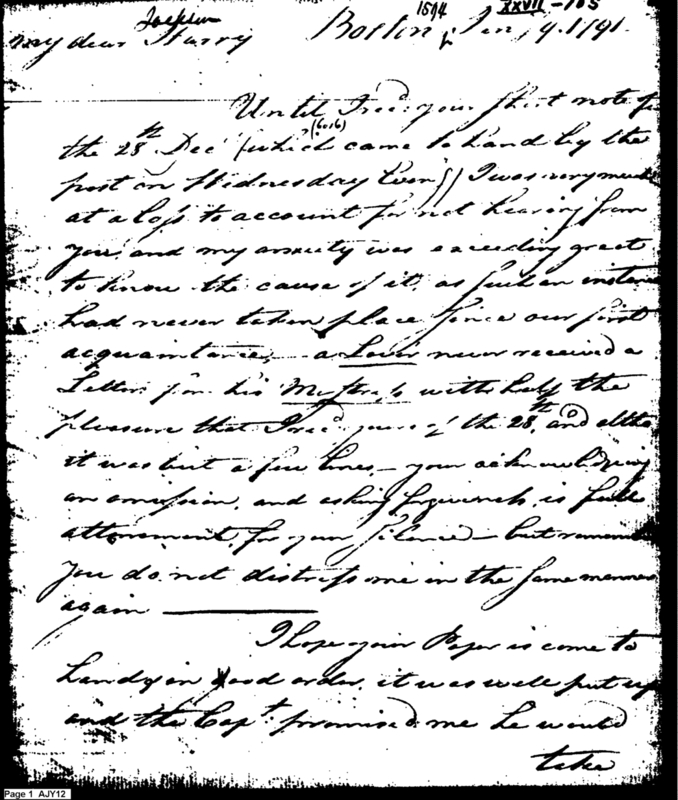 1594 XXVII-105
Jackson
My dear Harry Boston Jan 9. 1791.
Until I rec'd your short note of
the 28th Dec (which came to hand by the
post on Wednesday Even'g) I was very much
at a loss to account for not hearing from
you, and my anxiety was exceeding great
to know the cause of it, as such an instance
had never taken place since our first
acquaintance, – a Lover never received a
Letter from his Mistress with half the
pleasure that I rec'd yours of the 28th, and altho
it was but a few lines – your acknowledging
an omission, and asking forgiveness, is full
attonement, for your silence – but remember
you do not distress me in the same manner
again
I hope your Paper is come to
hand in good order, it was well put up
and the Capt. promised me he would
take
Page 1 AJY12